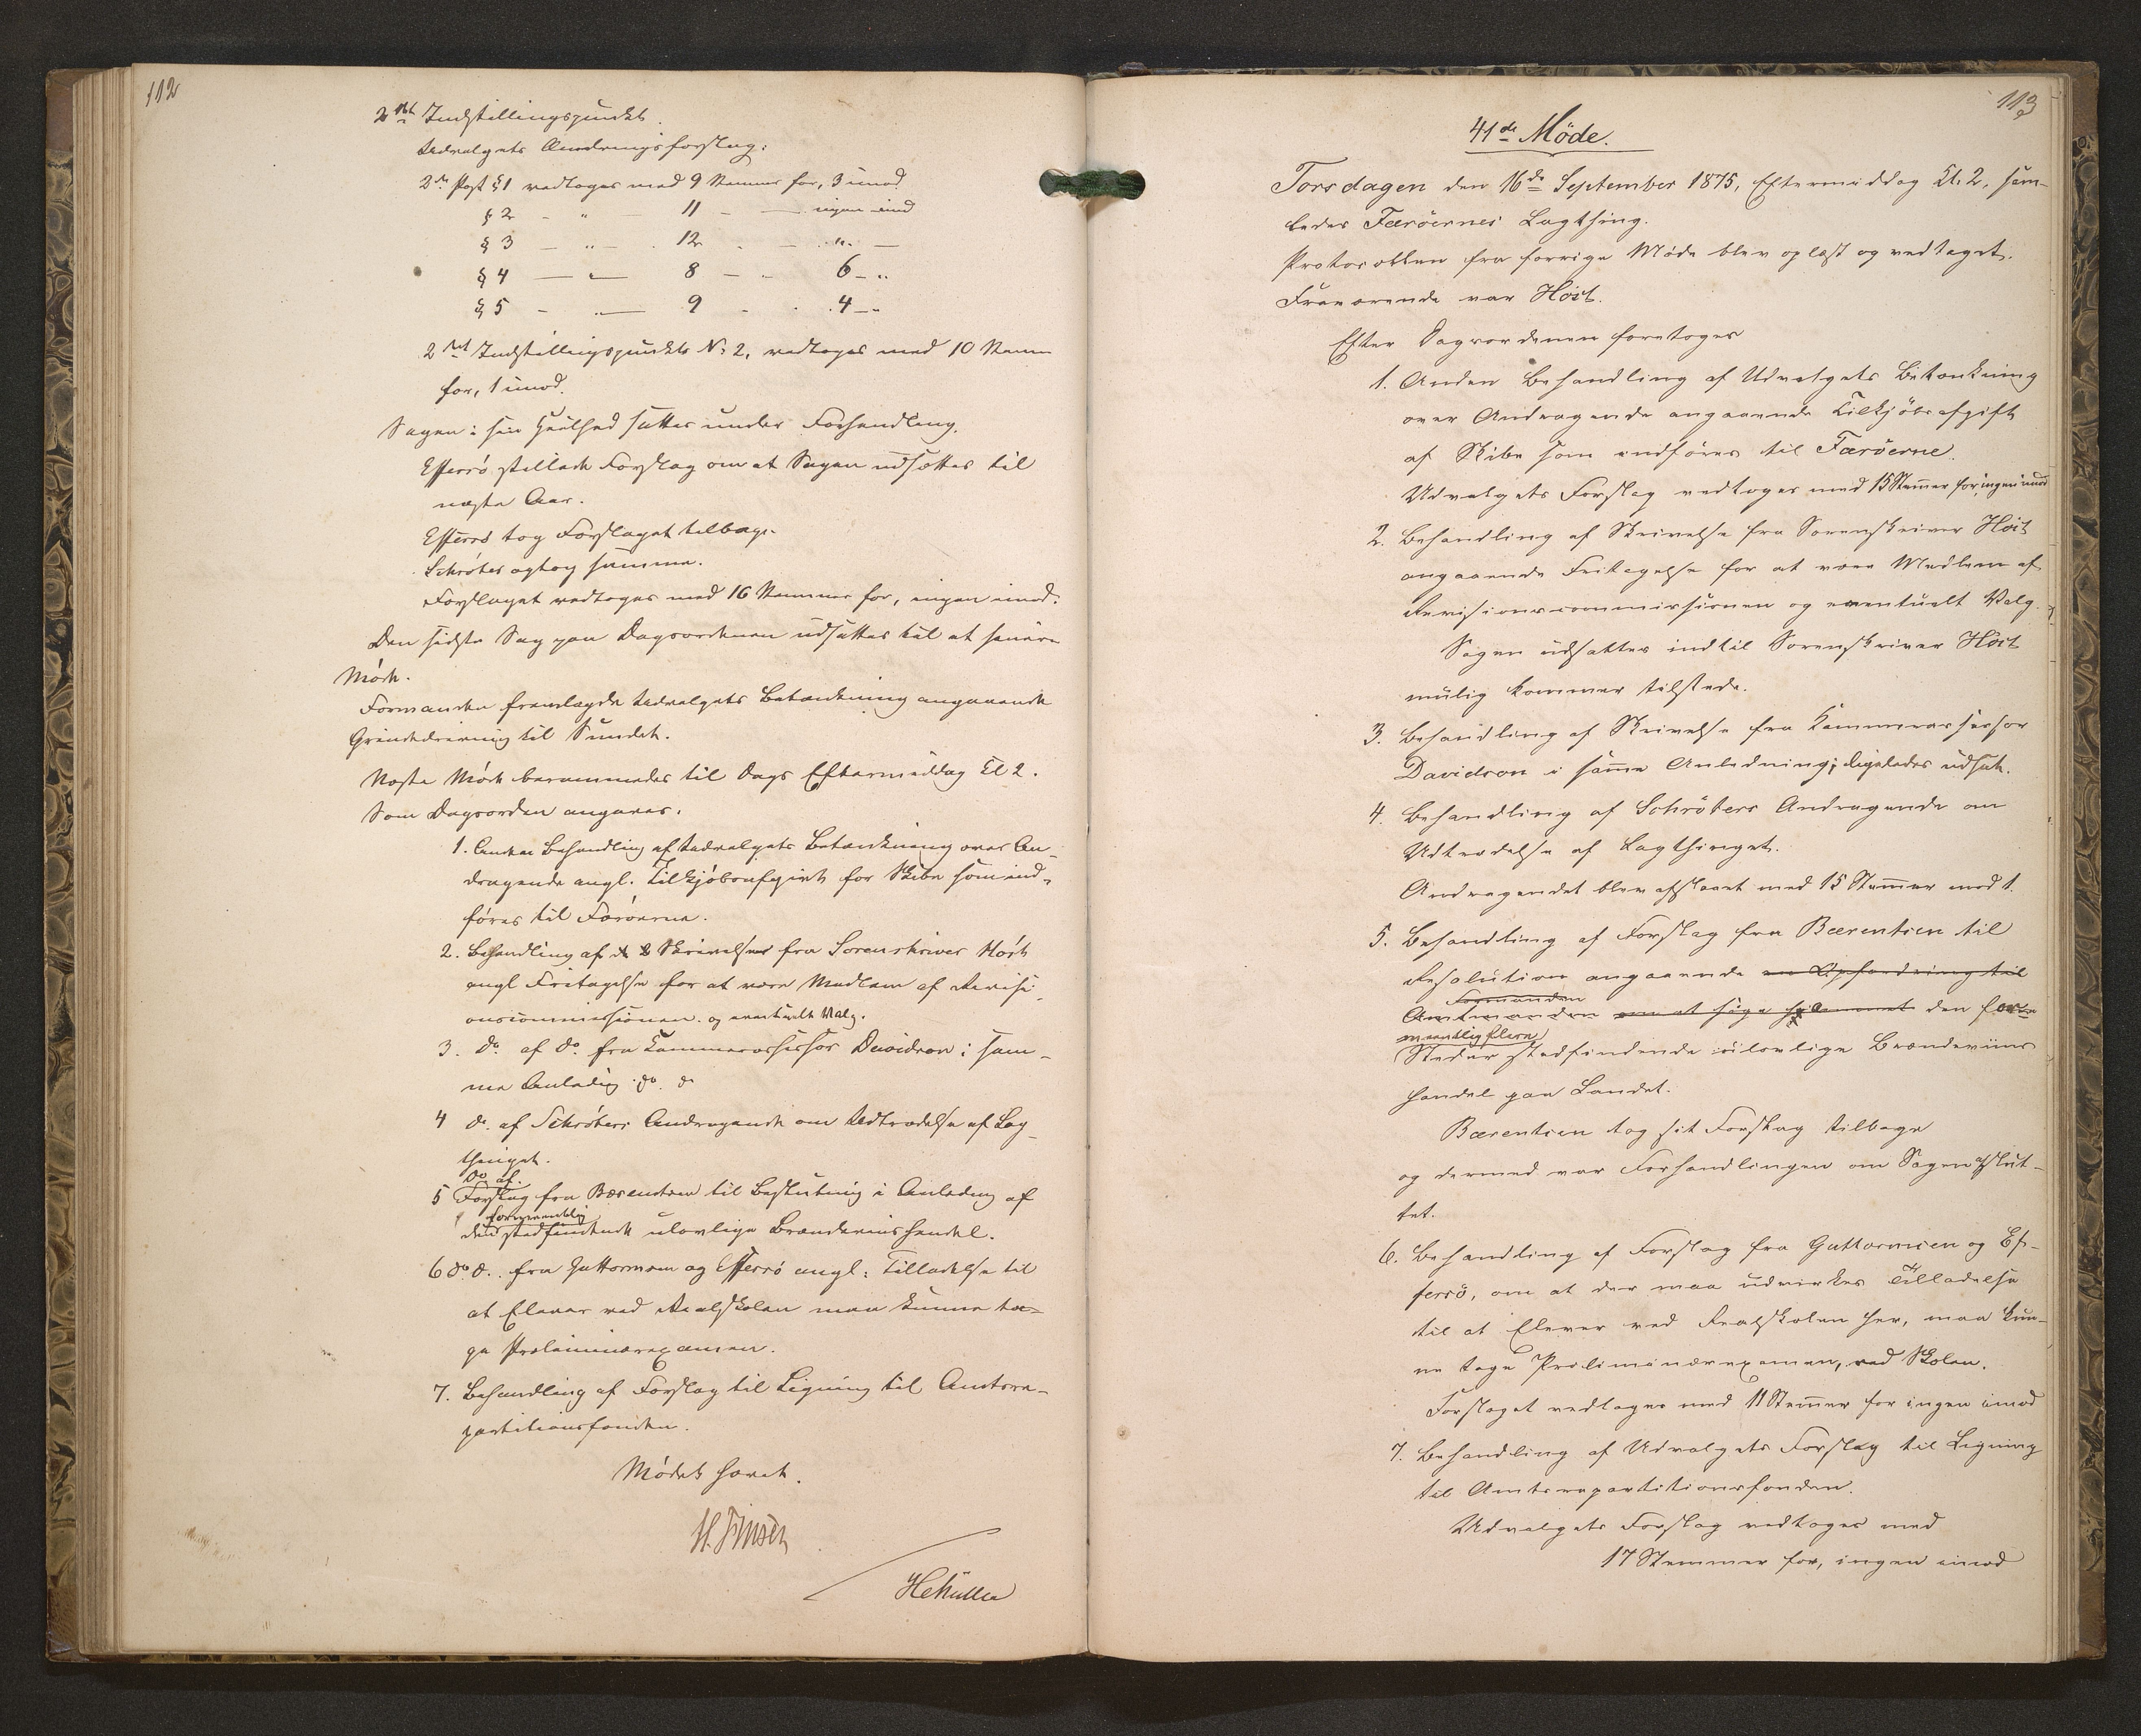 112
2det Indstillingspunkt.
Udvalgets Ændringsforslag:
2den Post § 1 vedtoges med 9 Stemmer for, 3 imod
§ 2 - " - 11 - - ingen imod
§ 3 - " - 12 - - " -
§ 4 - " - 8 - - 6 - "
§ 5 - " - 9 - - 4 - "
2det Indstillingspunkts No 2, vedtoges med 10 Stemm
for, 1 imod.
Sagen i sin Heelhed sattes under Forhandling.
Effersö stillede Forslag om at Sagen udsættes til
næste Aar.
Effersö tog Forslaget tilbage.
Schröter optog samme.
Forslaget vedtoges med 16 Stemmer for, ingen imod.
Den sidste Sag paa Dagsordenen udsattes til et senere
Möde.
Formanden fremlagde Udvalgets Betænkning angaaende
Grindedrivning til Sundet.
Næste Möde berammedes til Dags Eftermiddag Kl 2.
Som Dagsorden angaves.
1. Anden Behandling af Udvalgets Betænkning over An-
dragende angl. Tilkjöbsafgivt for Skibe som ind-
föres til Færöerne.
2. Behandling af Skrivelse fra Sorenskriver Höst
angl Fritagelse for at være Medlem af Revisi-
onscommissionen. og eventuelt Valg.
3. do. af do. fra Kammerassessor Davidson i sam-
me Anledng. do. do
4 do. af Schröters Andragende om Udtrædelse af Lag-
thinget.
do. af.
5 Forslag fra Bærentsen til Beslutning i Anledng af
formeentlig
den stedfindende ulovlige Brændeviinshandel.
6 do. d. fra Guttormsen og Effersö angl: Tilladelse til
at Elever ved Realskolen maa kunne ta-
ge Præliminærexamen.
7. Behandling af Forslag til Ligning til Amtsre-
partitionsfonden.
Mödet hævet.
H. Finsen
HCMüller
113
41de Möde.
Torsdagen den 16de September 1875, Eftermiddag Kl. 2, sam-
ledes Færöernes Lagthing.
Protocollen fra forrige Möde blev oplæst og vedtaget.
Fraværende var Höst.
Efter Dagsordenen foretoges
1. Anden Behandling af Udvalgets Betænkning
over Andragende angaaende Tilkjöbsafgift
af Skibe som indföres til Færöerne.
Udvalgets Forslag vedtoges med 15 Stemmer for, ingen imod
2. Behandling af Skrivelse fra Sorenskriver Höst
angaaende Fritagelse for at være Medlem af
Revisionscommissionen og eventuelt Valg.
Sagen udsattes indtil Sorenskriver Höst
mulig kommer tilstede.
3. Behandling af Skrivelse fra Kammerassessor
Davidson i samme Anledning; ligeledes udsat.
4. Behandling af Schröters Andragende om
Udtrædelse af Lagthinget.
Andragendet blev afslaaet med 15 Stemmer mod 1.
5. Behandling af Forslag fra Bærentsen til
Resolution angaaende en Opfordring til
Formanden
Amtmanden om at söge hemmet den for-
meentlig flere
Steder stedfindende ulovlige Brændeviins
handel paa Landet.
Bærentsen tog sit Forslag tilbage
og dermed var Forhandlingen om Sagen afslut-
tet.
6. Behandling af Forslag fra Guttormsen og Ef-
fersö, om at der maa udvirkes Tilladelse
til at Elever ved Realskolen her, maa kun-
ne tage Præliminærexamen, ved Skolen.
Forslaget vedtoges med 11 Stemmer for ingen imod
7. Behandling af Udvalgets Forslag til Ligning
til Amtsrepartitionsfonden.
Udvalgets Forslag vedtoges med
17 Stemmer for, ingen imod